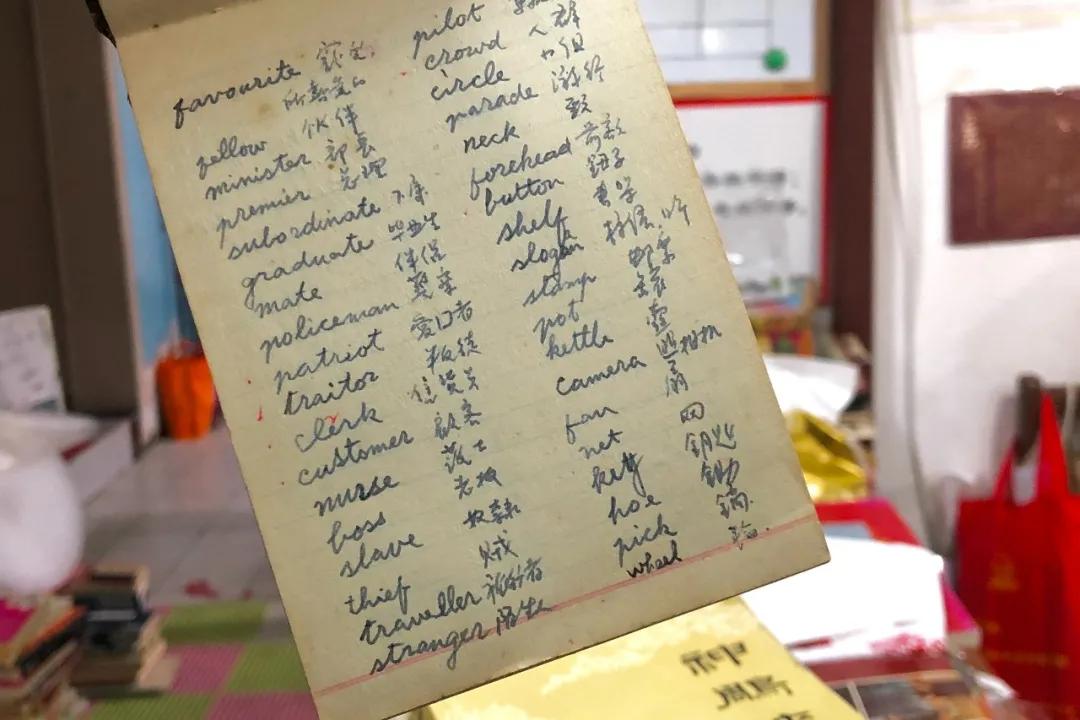 favourite
所喜爱的
fellow 伙伴
minister 部长
premier 总理
subordinate 下属
graduate 毕业生
mate 伴侣
policeman 警察
patriot 爱国者
traitor 叛徒
clerk 售货员
customer 顾客
nurse 护士
boss 老板
slave 奴隶
thief 贼
traveller 旅行者
stranger 陌生人
pilot
crowd 人群
circle
parade 游行
neck 颈
forehead 前额
button 钮子
shelf 书架
slogan
stamp 邮票
pot
kettle 壶
camera 照相机
fan 扇
net 网
key 钥匙
hoe 锄
pick 镐
wheel 轮